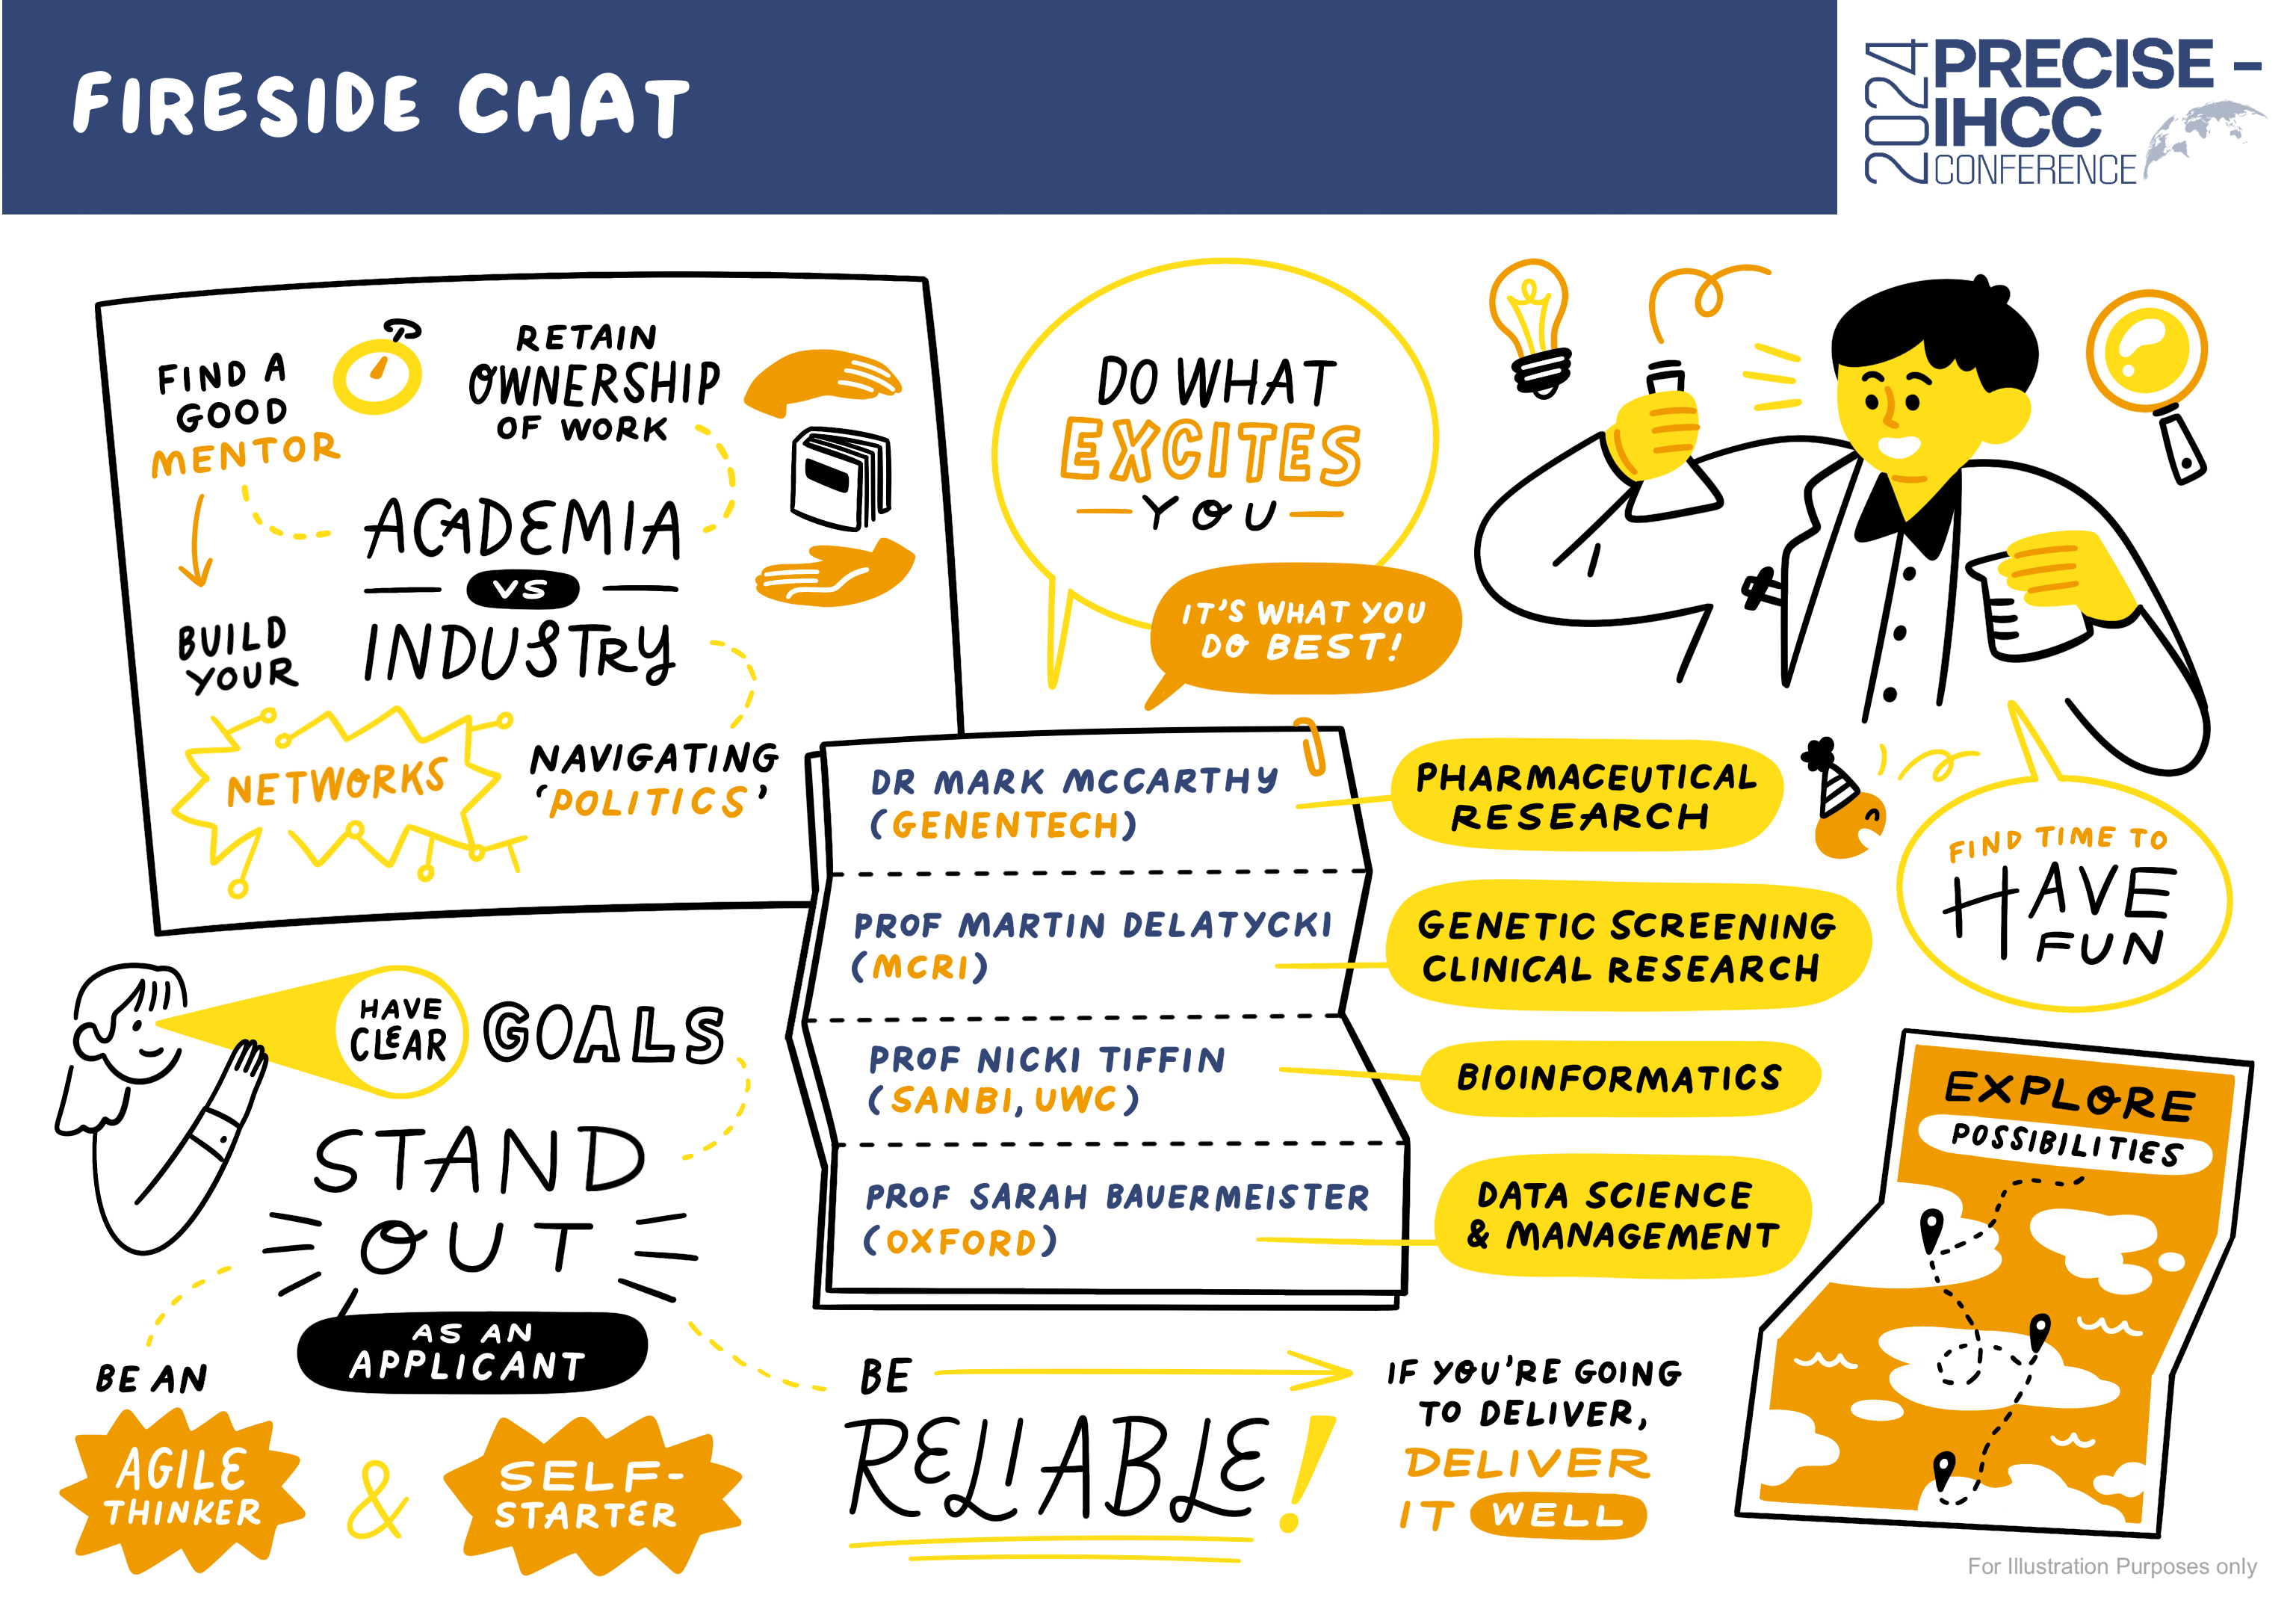 FIRESIDE CHAT
2024
PRECISE –
IHCC
CONFERENCE
FIND A
GOOD
MENTOR
BUILD
YOUR
NETWORKS
RETAIN
OWNERSHIP
OF WORK
ACADEMIA
VS
INDUSTRY
NAVIGATING
'POLITICS'
DO WHAT
EXCITES
YOU
IT'S WHAT YOU
DO BEST!
DR MARK MCCARTHY
(GENENTECH)
PHARMACEUTICAL
RESEARCH
PROF MARTIN DELATYCKI
(MCRI)
GENETIC SCREENING
CLINICAL RESEARCH
PROF NICKI TIFFIN
(SANBI, UWC)
BIOINFORMATICS
PROF SARAH BAUERMEISTER
(OXFORD)
DATA SCIENCE
& MANAGEMENT
FIND TIME TO
HAVE
FUN
EXPLORE
POSSIBILITIES
HAVE
CLEAR
GOALS
STAND
OUT
AS AN
APPLICANT
BE AN
AGILE
THINKER
&
SELF-
STARTER
BE
RELIABLE!
IF YOU'RE GOING
TO DELIVER,
DELIVER
IT WELL
For Illustration Purposes only